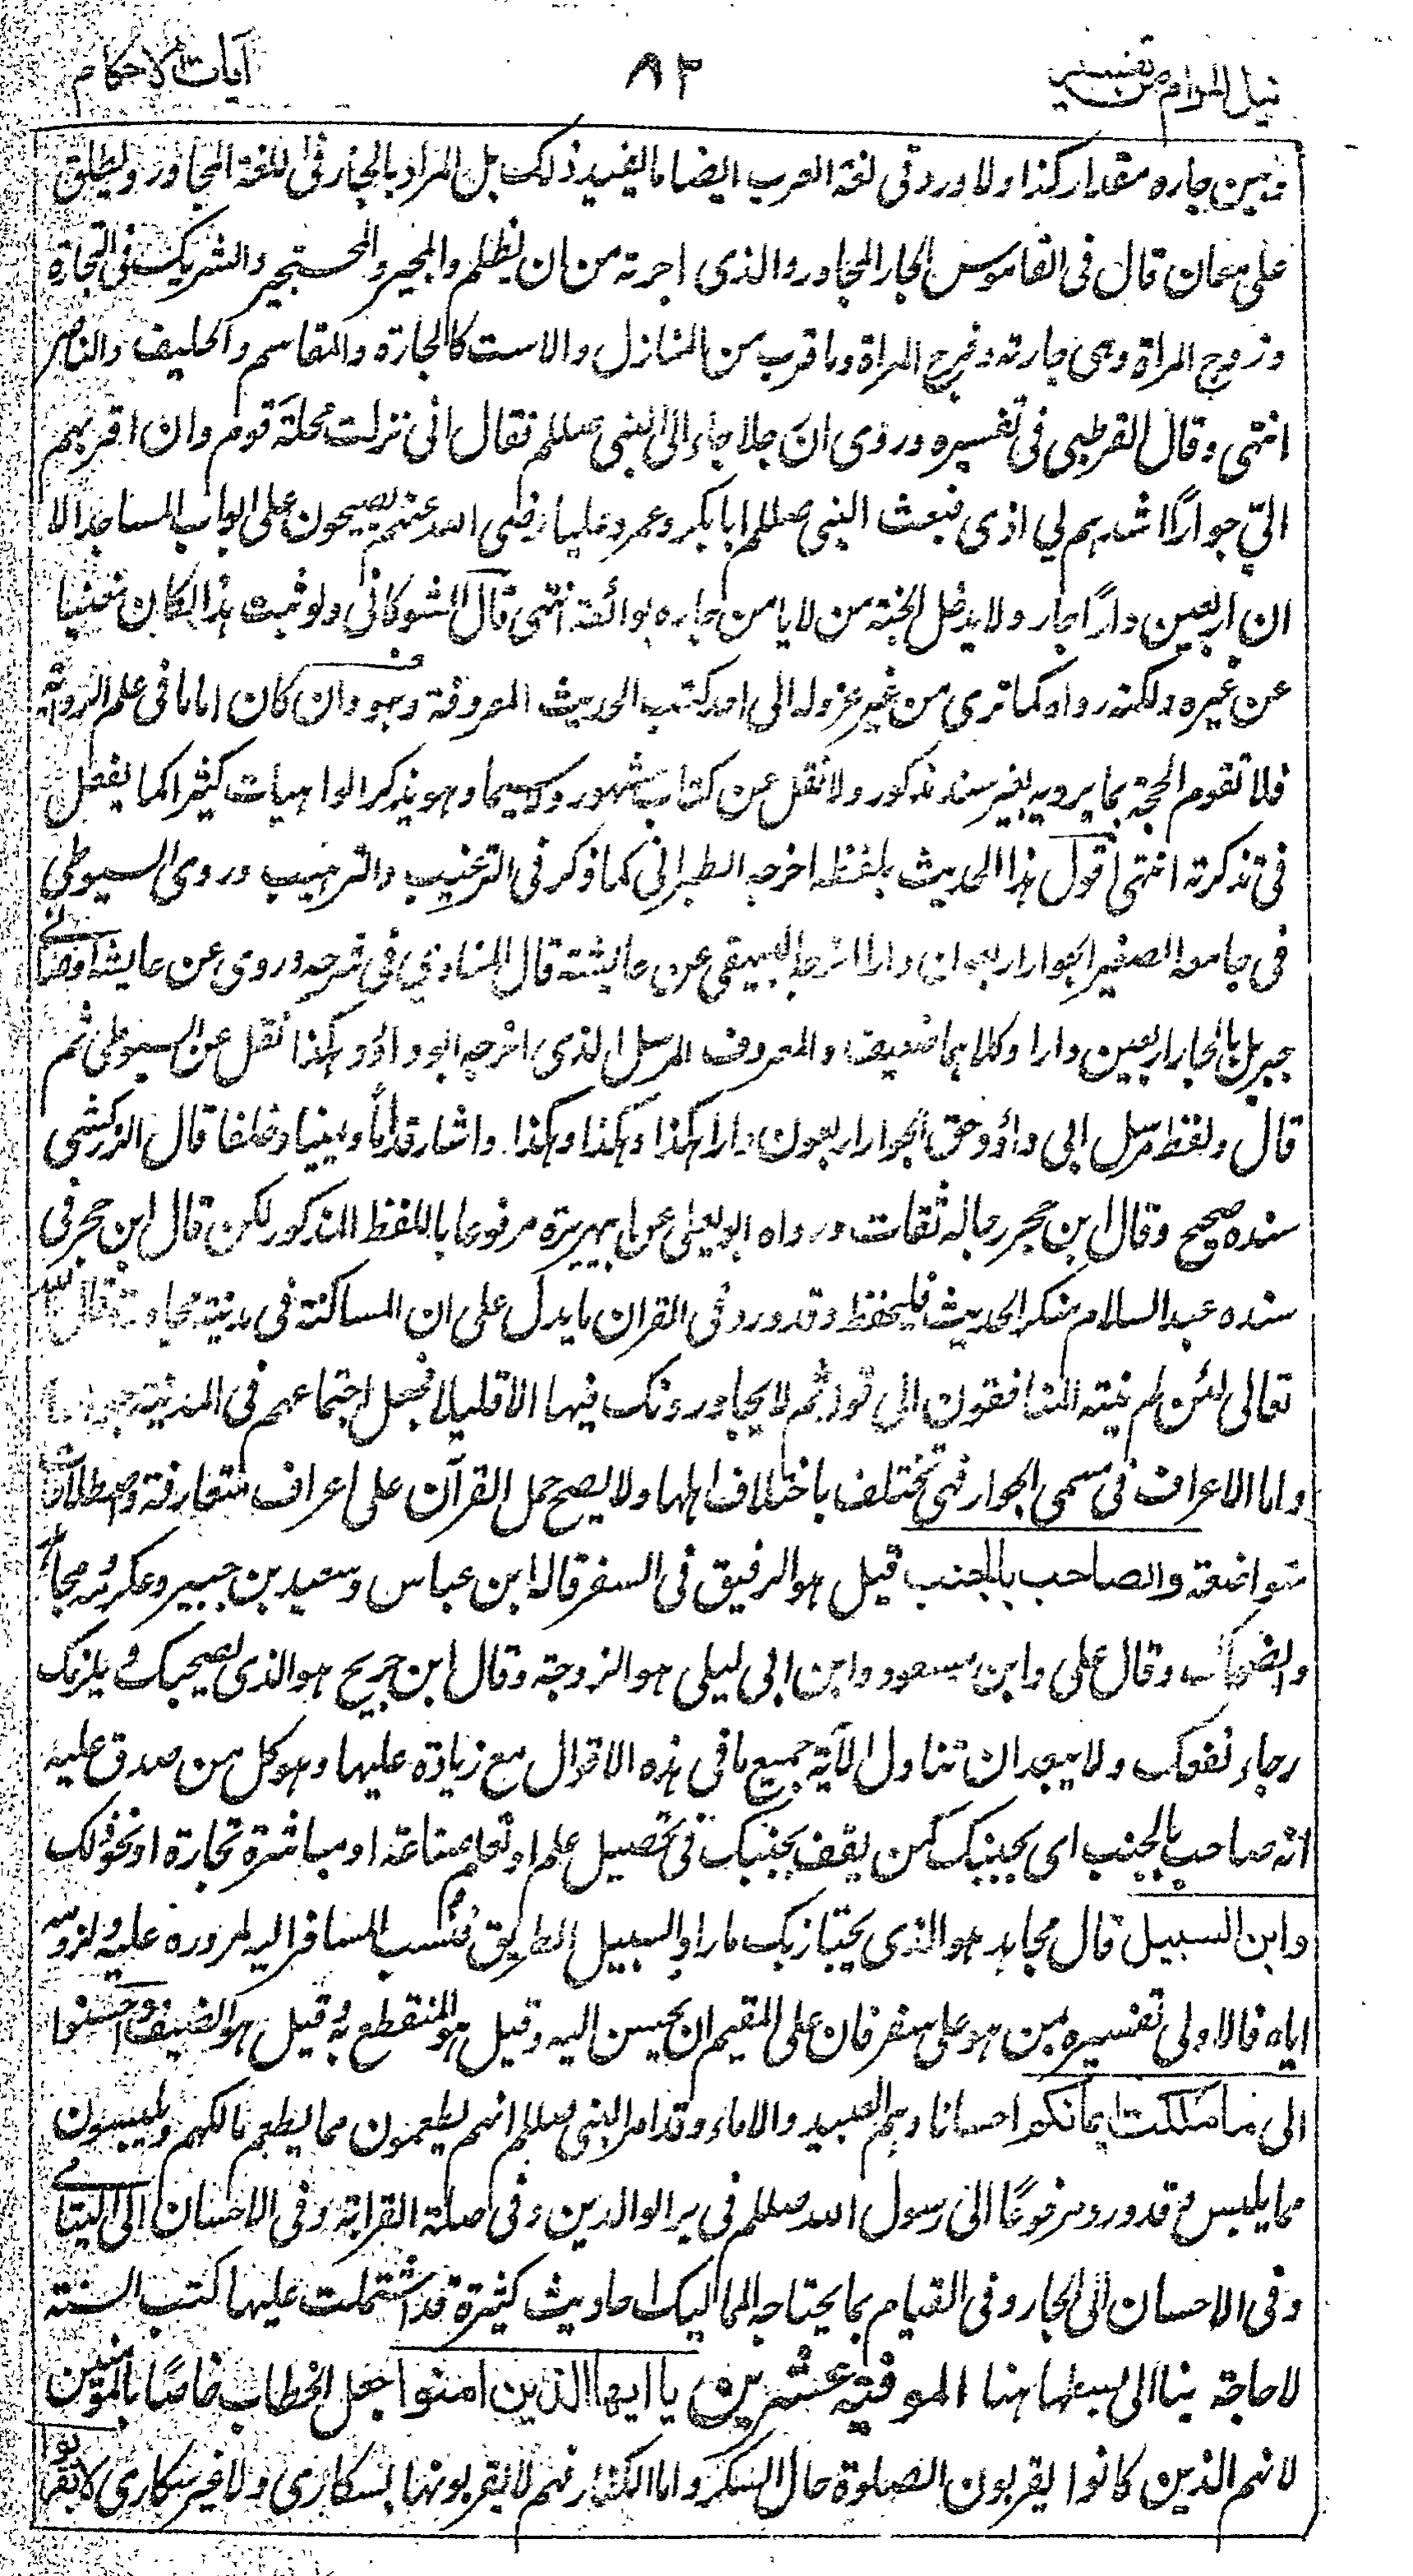 نيل المرام من تفسير ٨٣ آيات الاحكام
وبين جاره مقدار كذا ولا ورد في لغة العرب ايضا ما يفيد ذلك بل المراد بالجار في اللغة المجاور ويطلق
على معان قال في القاموس الجار المجاور والذى اجرته من ان يظلم والمجير والمستجير والشريك فى التجارة
وزوج المراة وهى جارته وفرج المراة وما قرب من المنازل والاست كالجارة والمقاسم والحليف والناصر
انتهى وقال القرطبى فى تفسيره وروى ان رجلا جاء الى النبى صللم فقال انى نزلت محلة قوم وان اقربهم
الىّ جوارًا اشدهم لي اذى فبعث النبى صللم ابا بكر وعمر وعليا رضى الله عنهم يصيحون على ابواب المساجد الا
ان اربعين دارًا جار ولا يدخل الجنة من لا يامن جاره بوائقه انتهى قال الشوكانى ولو ثبت هذا لكان مغنيا
عن غيره ولكنه رواه كما ترى من غير عزو له الى احد كتب الحديث المعروفة وهو وان كان اماما فى علم الرواية
فلا تقوم الحجة بما يرويه بغير سند مذكور ولا نقل عن كتاب مشهور ولا سيما وهو يذكر الواهيات كثيرا كما يفعل
فى تذكرته انتهى اقول هذا الحديث بلفظه اخرجه الطبرانى كما ذكر فى الترغيب والترهيب وروى السيوطى
فى جامعه الصغير الجوار اربعون دارا اخرجه البيهقى عن عايشة قال المناوي فى شرحه وروى عن عايشة اوصانى
جبريل بالجار اربعين دارا وكلاهما ضعيف والمعروف المرسل الذى اخرجه ابو داؤد هكذا نقل عن السيوطى ثم
قال ولفظ مرسل ابى داؤد حق الجوار اربعون دارا هكذا وهكذا وهكذا واشار قداماً ويمينا وخلفا قال الزركشى
سنده صحيح وقال ابن حجر رجاله ثقات ورواه ابو يعلى عن ابى هريرة مرفوعا باللفظ المذكور لكن قال ابن حجر فى
سنده عبد السلام منكر الحديث فليحفظ وقد ورد فى القران ما يدل على ان المساكنة فى مدينة مجاورة قال الله
تعالى لئن لم ينته المنافقون الى قوله ثم لا يجاورونك فيها الا قليلا فجعل اجتماعهم فى المدينة جوارا
واما الاعراف فى مسمى الجوار فهى تختلف باختلاف اهلها ولا يصح حمل القرآن على اعراف متعارفة واصطلاحات
متواضعة والصاحب بالجنب قيل هو الرفيق فى السفر قاله ابن عباس وسعيد بن جبير وعكرمة ومجاهد
والضحاك وقال على وابن مسعود وابن ابى ليلى هو الزوجة وقال ابن جريج هو الذى يصحبك ويلزمك
رجاء نفعك ولا يبعد ان تتناول الآية جميع ما فى هذه الاقوال مع زيادة عليها وهو كل من صدق عليه
انه صاحب بالجنب اى بجنبك كمن يقف بجنبك فى تحصيل علم او تعلم صناعة او مباشرة تجارة او نحو ذلك
وابن السبيل قال مجاهد هو الذى يجتاز بك مارا والسبيل الطريق فنسب المسافر اليه لمروره عليه ولزومه
اياه فالاولى تفسيره بمن هو على سفر فان على المقيم ان يحسن اليه وقيل هو المنقطع به وقيل هو الضيف واحسنوا
الى ما ملكت ايمانكم احسانا وهم العبيد والاماء وقد امر النبى صللم انهم يطعمون مما يطعم مالكهم ويلبسون
مما يلبس وقد ورد مرفوعًا الى رسول الله صللم فى بر الوالدين وفى صلة القرابة وفى الاحسان الى اليتامى
وفى الاحسان الى الجار وفى القيام بما يحتاجه المماليك احاديث كثيرة قد اشتملت عليها كتب السنة
لا حاجة بنا الى بسطها هنا الموفية عشرين يا ايها الذين امنوا جعل الخطاب خاصًا بالمؤمنين
لانهم الذين كانوا يقربون الصلوة حال السكر واما الكفار فهم لا يقربونها سكارى ولا غير سكارى لا تقربوا